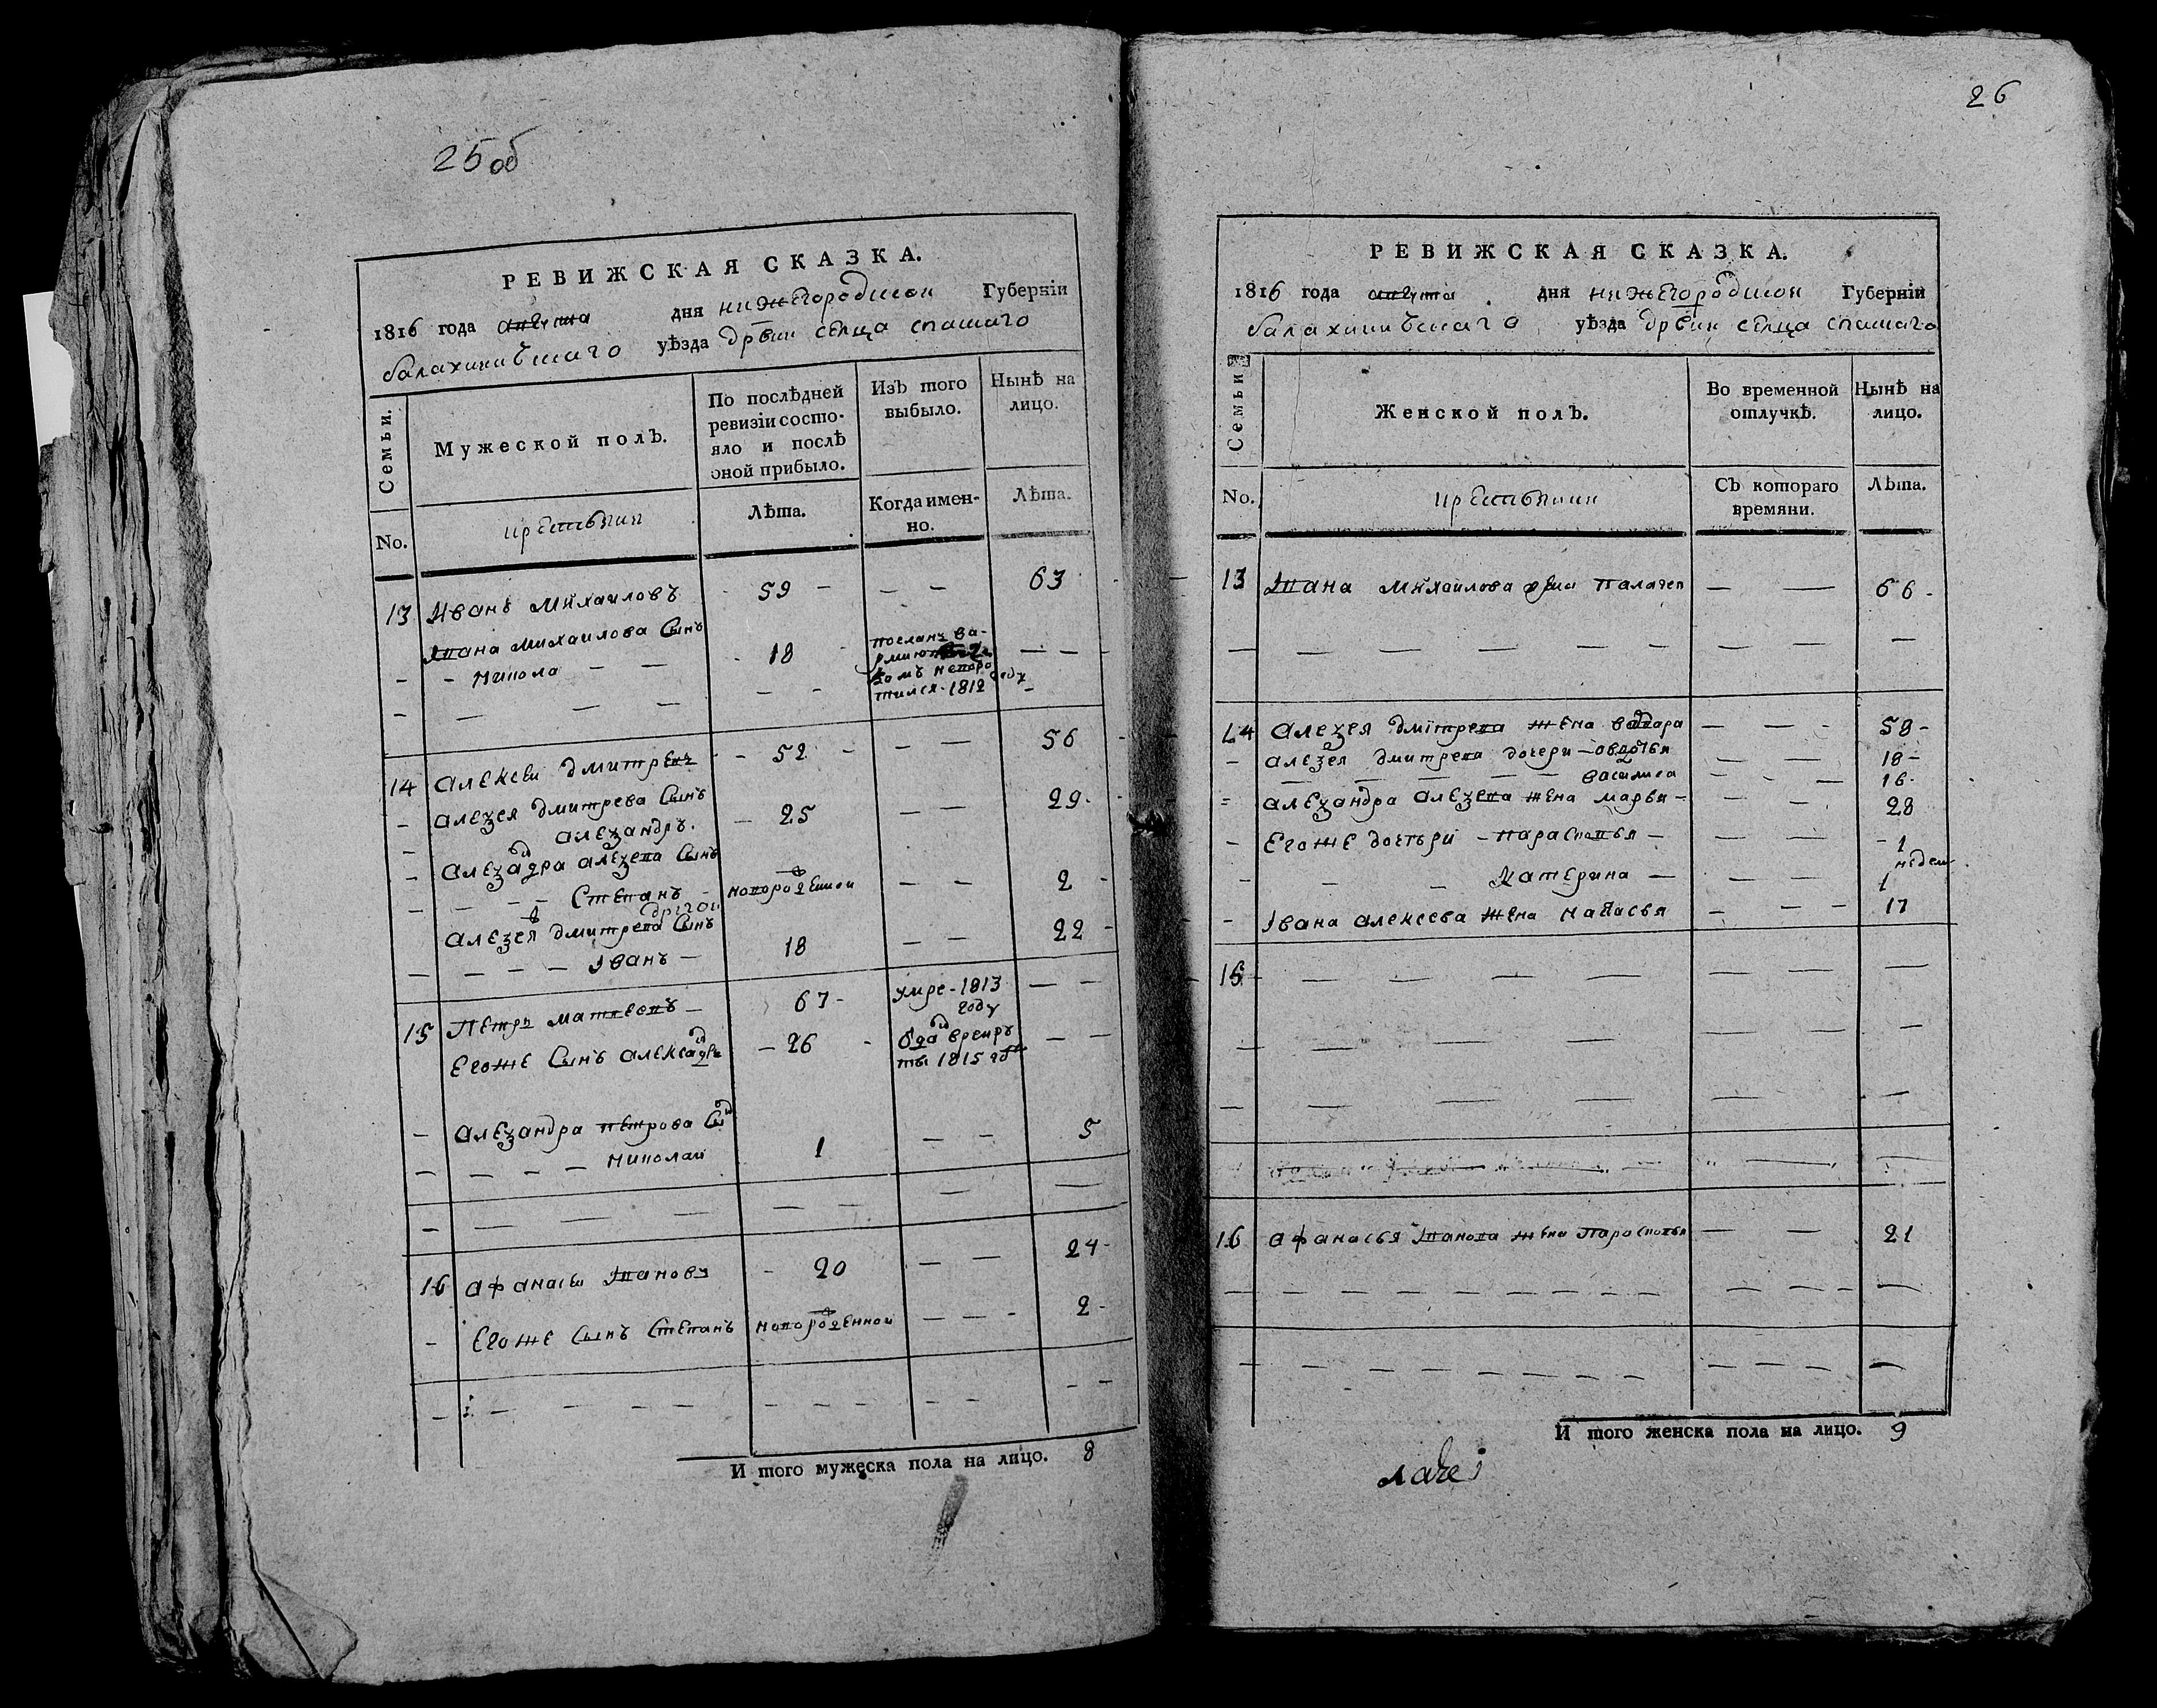 25 об
РЕВИЖСКАЯ СКАЗКА.
1816 года августа дня нижегородской Губернїи
балахнинъскаго уѣзда дрвни селца спаскаго
Семьи.
Мужеской полъ.
По послѣдней
ревизїи состо-
яло и послѣ
оной прибыло.
Изъ того
выбыло.
Нынѣ на
лицо.
No.
крестьяни
Лѣта.
Когда имен-
но.
Лѣта.
13 Иванъ михаиловъ 59 — — 63
Ивана михаилова Сынъ
— Никола — — 18
посланъ ва-
рмию
домъ неворо
тился 1812 году
14 Алексеи дмитревъ 52 — — 56
алеѯея дмитрева Сынъ
алеѯандръ. 25 — — 29
алеѯандра алеѯева Сынъ
Степанъ новорожденной — — 2
другои
алеѯея дмитрева Сынъ
Iванъ 18 — — 22
15 Петръ матвеевъ 67 умре 1813
году
Егоже Сынъ алексадръ 26
ѿда врекру
ты 1815 го
алеѯандра петрова Сы
Николаи 1 — — 5
16 афанасеи Ивановъ 20 — — 24
Егоже Сынъ Степанъ новорожденнои — — 2
И того мужеска пола на лицо. 8
26
РЕВИЖСКАЯ СКАЗКА.
1816 года августа дня нижегородской Губернїи
балахнинъскаго уѣзда дрвни селца спаскаго
Семьи
Женской полъ.
Во временной
отлучкѣ.
Нынѣ на
лицо.
No.
крестьянки
Съ котораго
времяни.
Лѣта.
13 Ивана михаилова жена Палагея — — 66
14 алеѯея дмїтрева жена вАрвара — — 58
алеѯея дмитрева дочери — овдотья — — 18
василиса — — 16
алеѯандра алеѯева жена марья — — 28
Егоже дочтьри — парасковья — — 1
недели
Катерина — 1
Iвана алексеева жена настасья — — 17
15
16 афанасья Iванова жена Парасковья — — 21
И того женска пола на лицо. 9